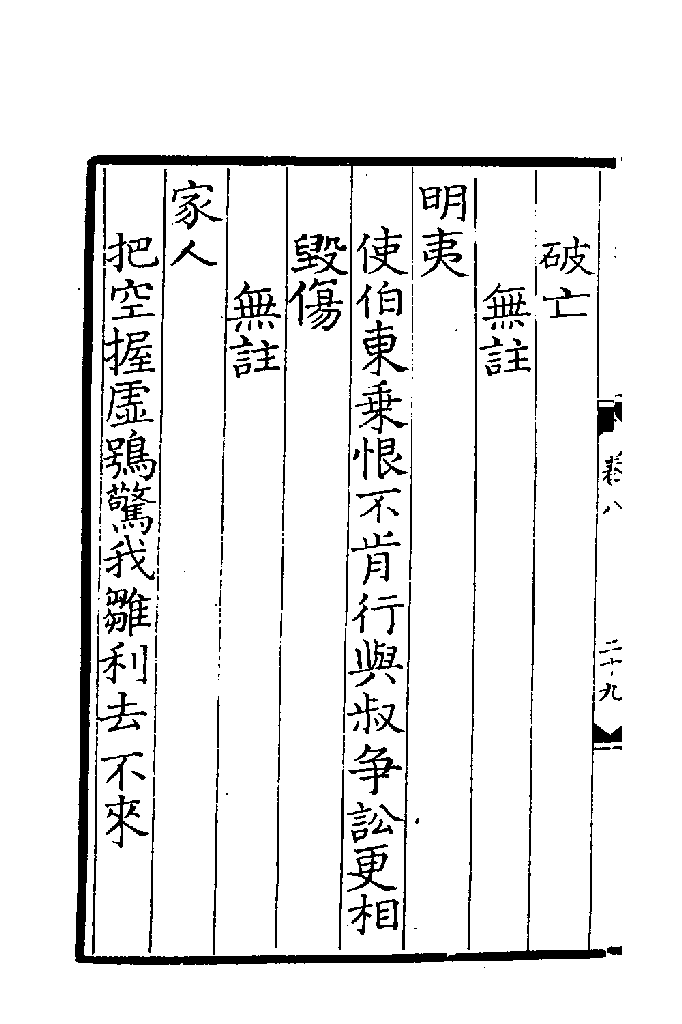 卷八
二十九
破亡
無註
明夷
使伯東乗恨不肯行與叔争訟更相
毀傷
無註
家人
把空握虛鴞驚我雛利去不來